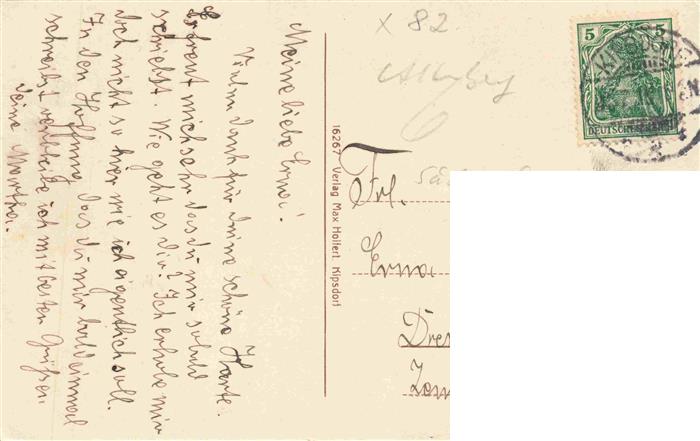 Meine liebe Erna!
Vielen Dank für deine schöne Karte.
Es freut mich sehr das du mir sobald
schreibst. Wie geht es dir? Ich erhole mir
doch nicht so sehr wie ich eigentlich soll.
In der Hoffnung das du mir bald einmal
schreibst verbleibe ich mit besten Grüßen
deine Martha.
16267 Verlag Max Hollert, Kipsdorf
X 82
5 5
DEUTSCHES REICH
Frl.
Erna